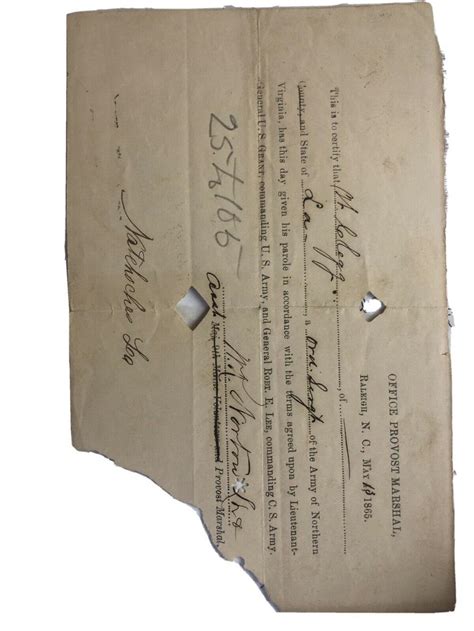 OFFICE PROVOST MARSHAL,
RALEIGH, N. C., MAY 1865.
This is to certify that , of
County, and State of La , a Ord Sergt of the Army of Northern
Virginia, has this day given his parole in accordance with the terms agreed upon by Lieutenant-
General U. S. GRANT, commanding U. S. Army, and General ROBT. E. LEE, commanding C. S. Army.
Norton
Maj. 9th Maine Volunteers and Provost Marshal.
Natchitoches